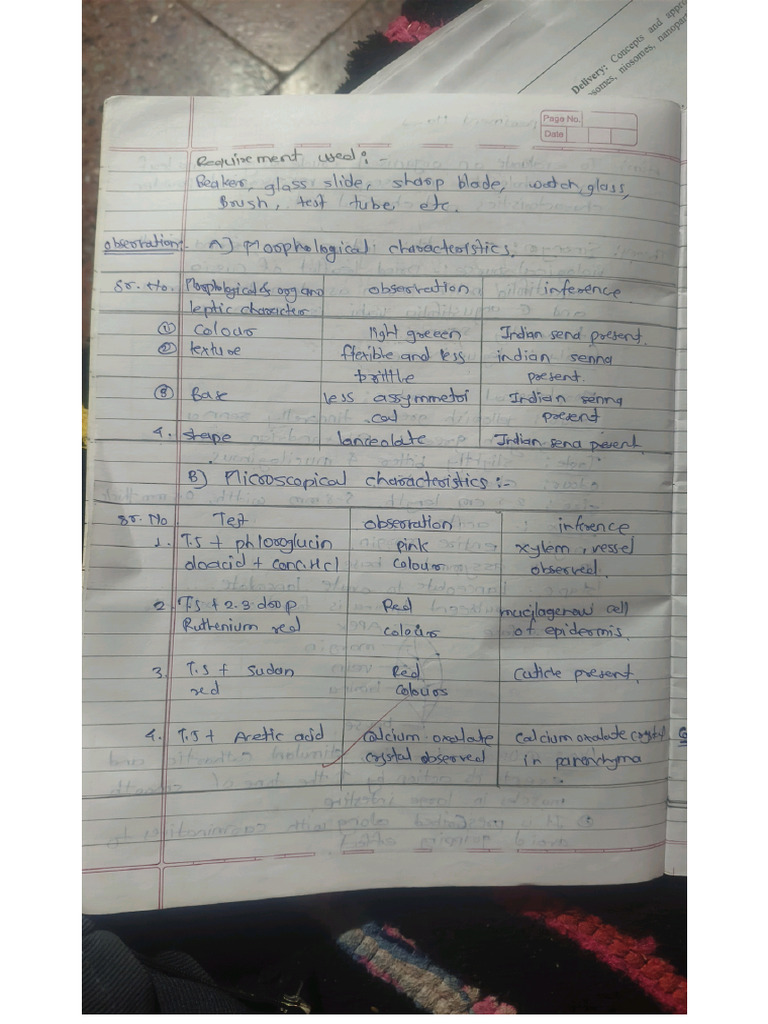 Delivery: Concepts and appro
somes, niosomes, nanopar
Page No.
Date
Requirement used:-
Beaker, glass slide, sharp blade, watch glass,
Brush, test tube, etc.
observation:- A) Morphological characteristics.
Sr. No. Morphological & organo observation inference
leptic character
① colour light greeen Indian send present.
② texture flexible and less indian senna
brittle present.
③ Base less assymmetri Indian senna
cal present
4. shape lanceolate Indian sena present.
B) Microscopical characteristics :-
Sr. No Test observation inference
1. T.S + phloroglucin pink xylem, vessel
oloacid + conc. Hcl colour observed.
2. T.S + 2.3 drop Red mucilagenous cell
Ruthenium red colour of epidermis.
3. T.S + Sudan Red Cuticle present.
red colours
4. T.S + Acetic acid calcium oxalate calcium oxalate crystal
crystal observed in parenchyma